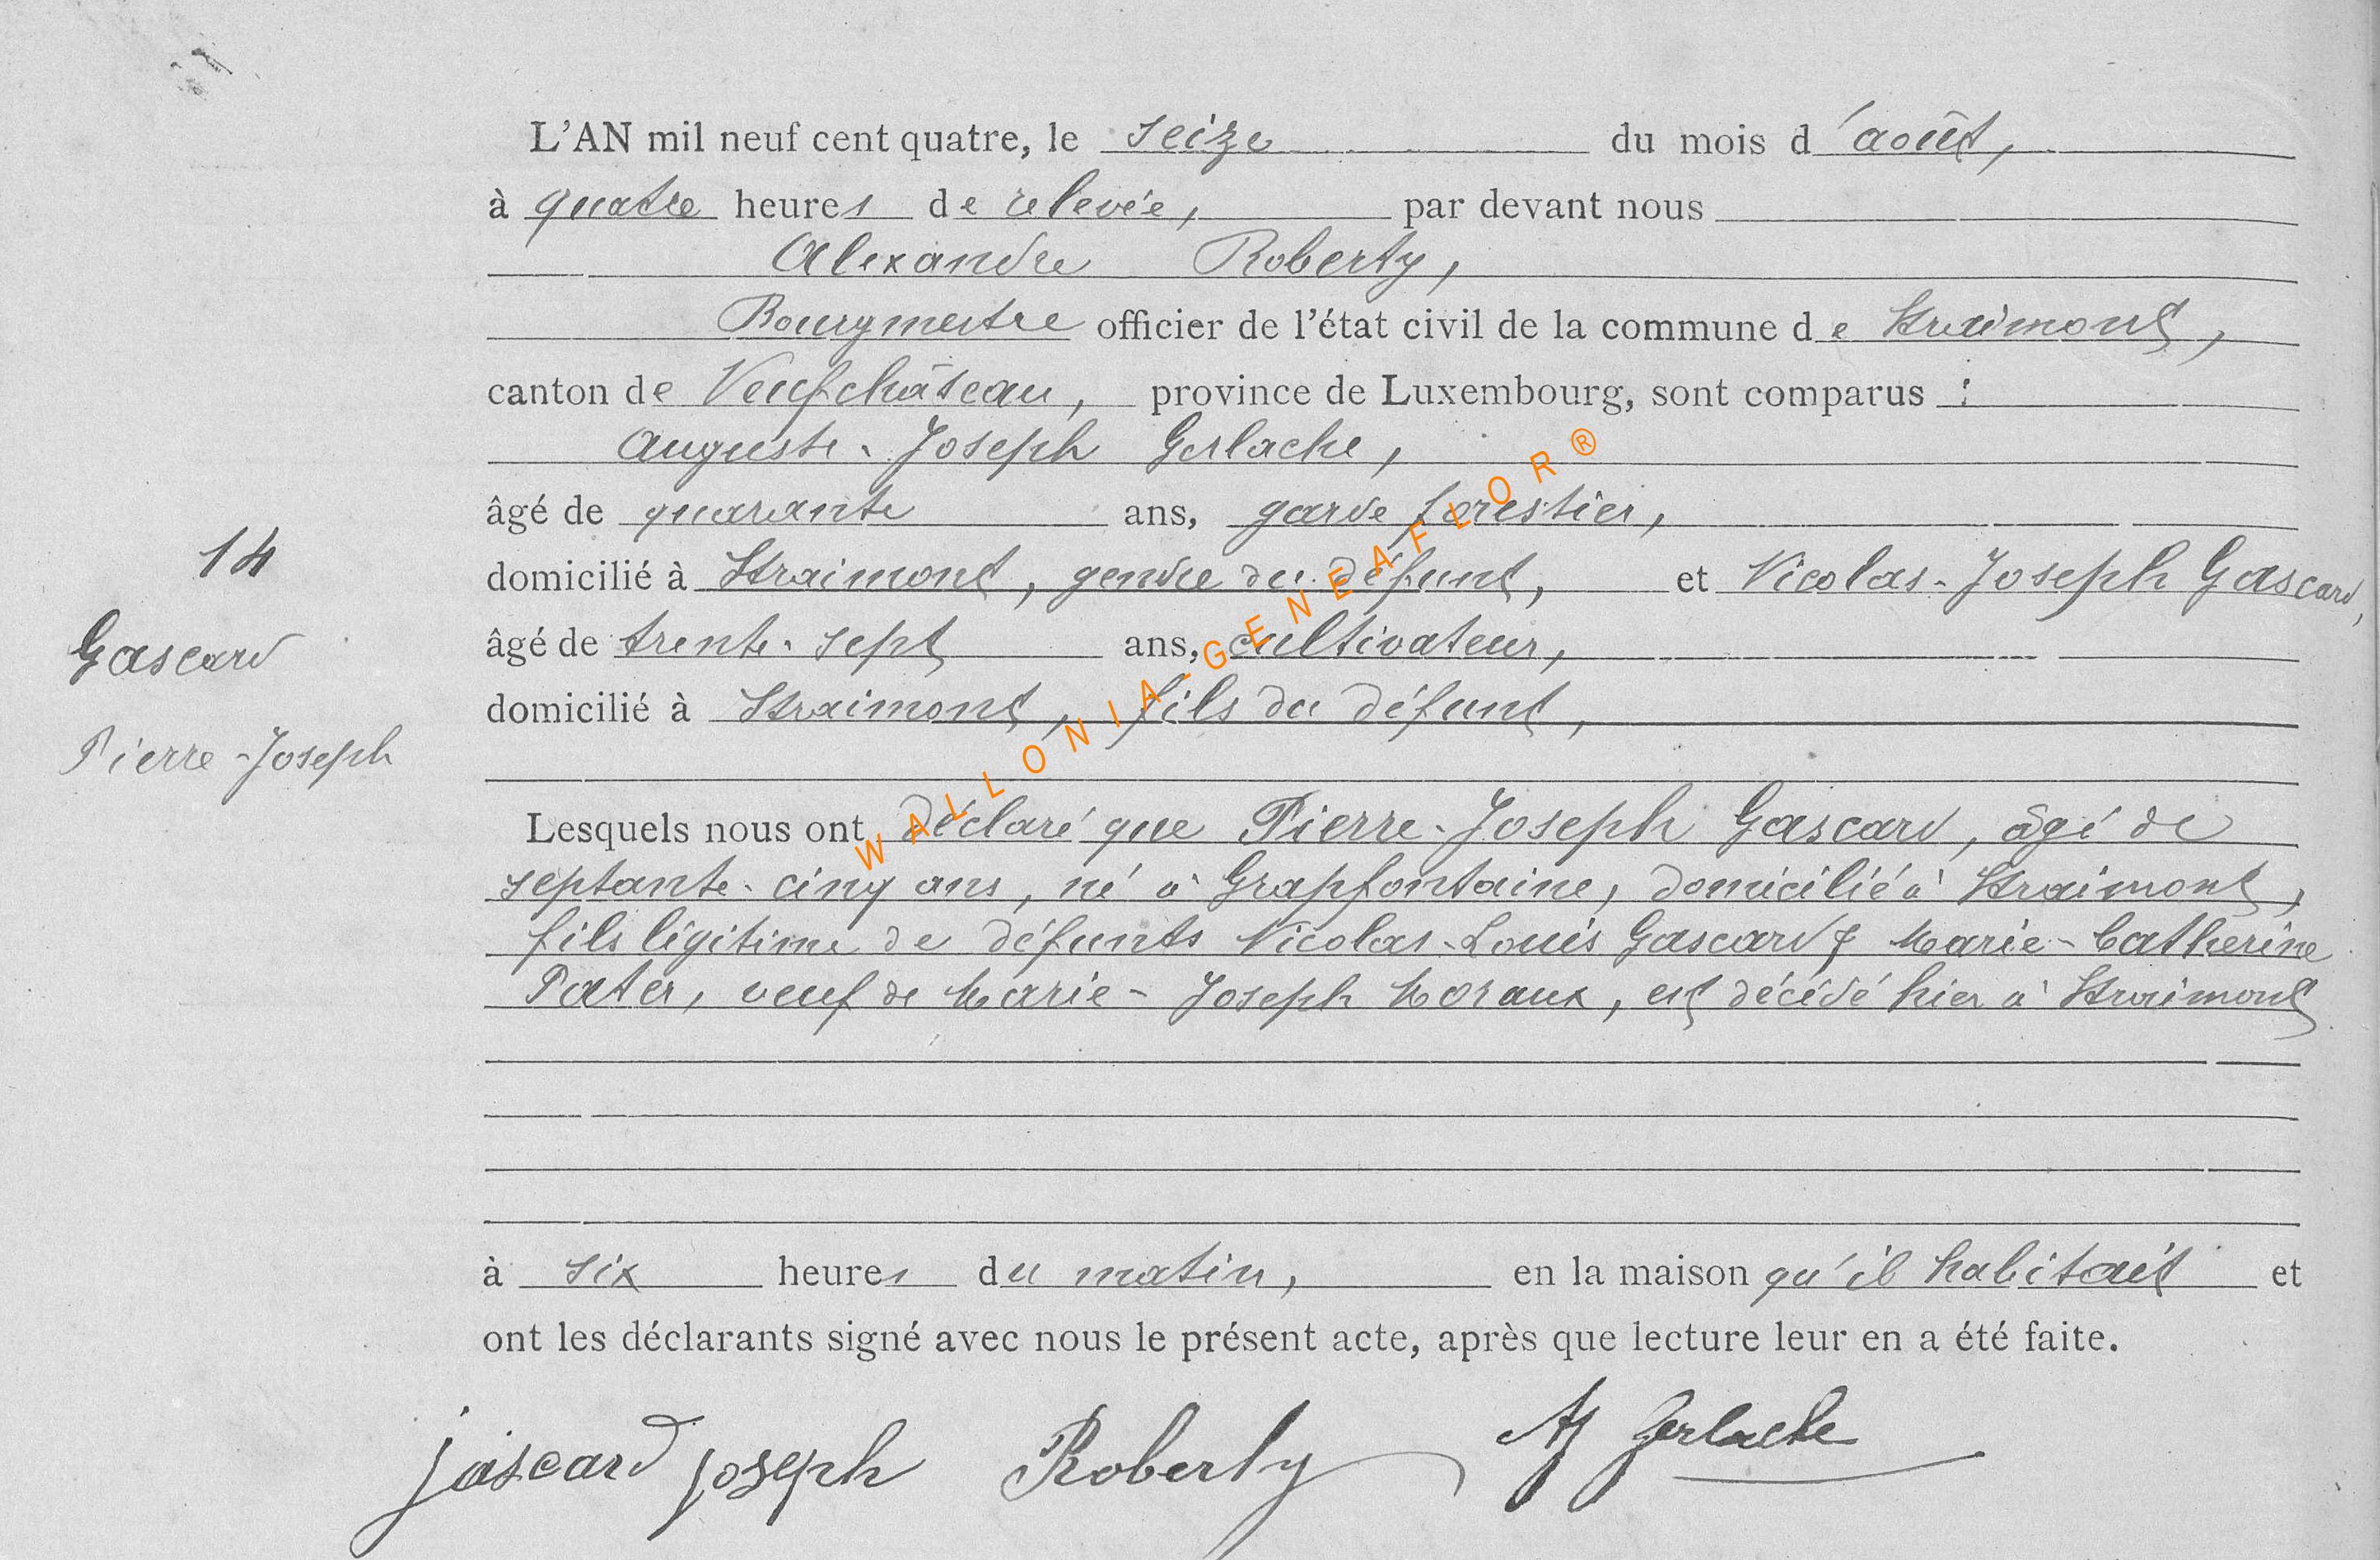 L'AN mil neuf cent quatre, le seize du mois d'août,
à quatre heures de relevée, par devant nous
Alexandre Roberty,
Bourgmestre officier de l'état civil de la commune de Straimont,
canton de Neufchâteau, province de Luxembourg, sont comparus :
Auguste-Joseph Gerlache,
âgé de quarante ans, garde forestier,
14
domicilié à Straimont, gendre du défunt, et Nicolas-Joseph Gascard,
Gascard
âgé de trente-sept ans, cultivateur,
domicilié à Straimont, fils du défunt,
Pierre-Joseph
Lesquels nous ont déclaré que Pierre-Joseph Gascard, âgé de
septante-cinq ans, né à Grapfontaine, domicilié à Straimont,
fils légitime de défunts Nicolas-Louis Gascard & Marie-Catherine
Pater, veuf de Marie-Joseph Moraux, est décédé hier à Straimont
à six heures du matin, en la maison qu'il habitait et
ont les déclarants signé avec nous le présent acte, après que lecture leur en a été faite.
Jascard joseph Roberty AJ Gerlache
WALLONIA-GENEAFLOR®